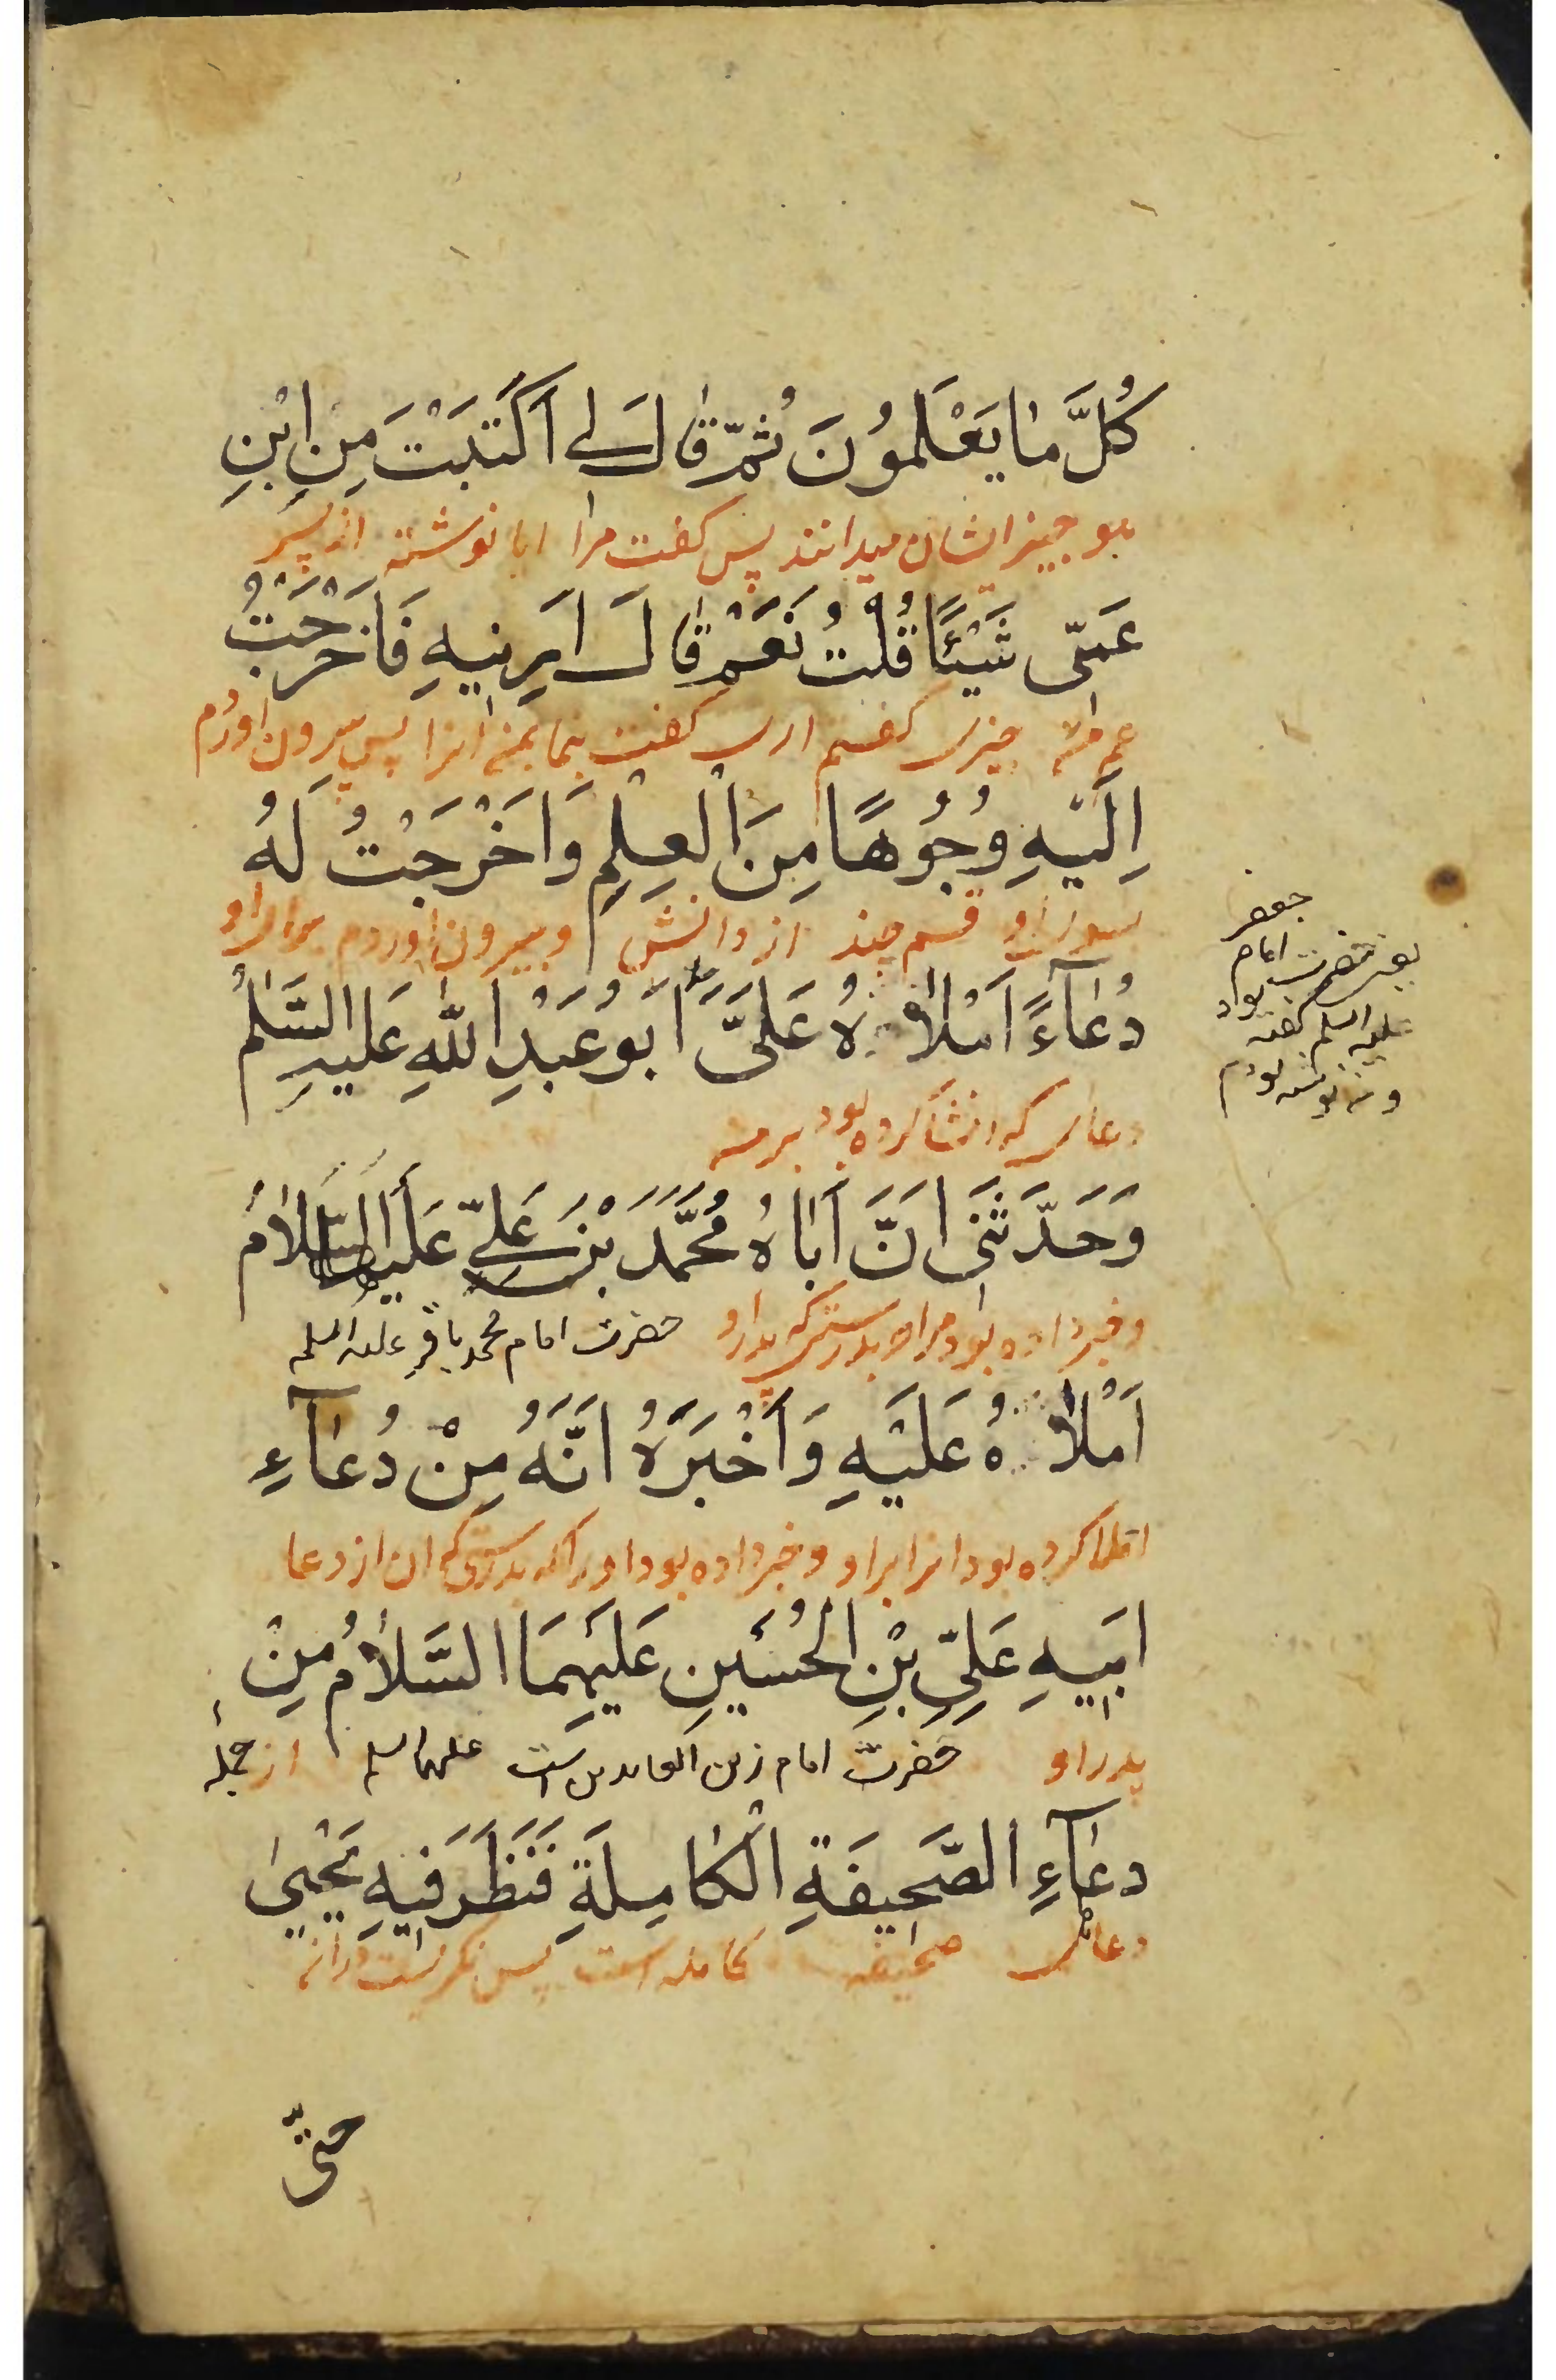 كُلَّ مَا يَعْلَمُونَ ثُمَّ قَالَ لِي أَكَتَبْتَ مِنِ ابْنِ
چیز ایشان میدانند پس گفت مرا ایا نوشته از پسر
عَمّى شَيْئًا قُلْتُ نَعَمْ قَالَ اَرِنِيهِ فَاَخْرَجْتُ
چیزی گفتم اری گفت بنما بمن انرا پس بیرون اوردم
اِلَيْهِ وُجُوهًا مِنَ الْعِلْمِ وَاَخْرَجْتُ لَهُ
بسوی او قسم چند از دانش و بیرون اوردم برای او
دُعَآءً اَمْلَاهُ عَلَىَّ اَبُو عَبْدِ اللّٰهِ عَلَيْهِ السَّلٰمُ
دعای که انشا کرده بود بر من
وَحَدَّثَنِى اَنَّ اَبَاهُ مُحَمَّدَ بْنَ عَلِيّ عَلَيْهِمَا السَّلَامُ
و خبر داده بود مرا بدرستی که پدر او حضرت امام محمد باقر علیه السلم
اَمْلَاهُ عَلَيْهِ وَاَخْبَرَهُ اَنَّهُ مِنْ دُعَآءِ
املا کرده بود انرا بر او و خبر داده بود او را که بدرستی که ان از دعا
اَبِيهِ عَلِيِّ بْنِ الْحُسَيْنِ عَلَيْهِمَا السَّلَامُ مِنْ
پدر او حضرت امام زین العابدین است علیهما السلم از جمله
دُعَآءِ الصَّحِيفَةِ الْكَامِلَةِ فَنَظَرَ فِيهِ يَحْيىٰ
دعای صحیفه کامله است پس نگریست در ان
حتّى
جعفر
یعنی حضرت امام
علیه السلم گفته بود
و من نوشته بودم